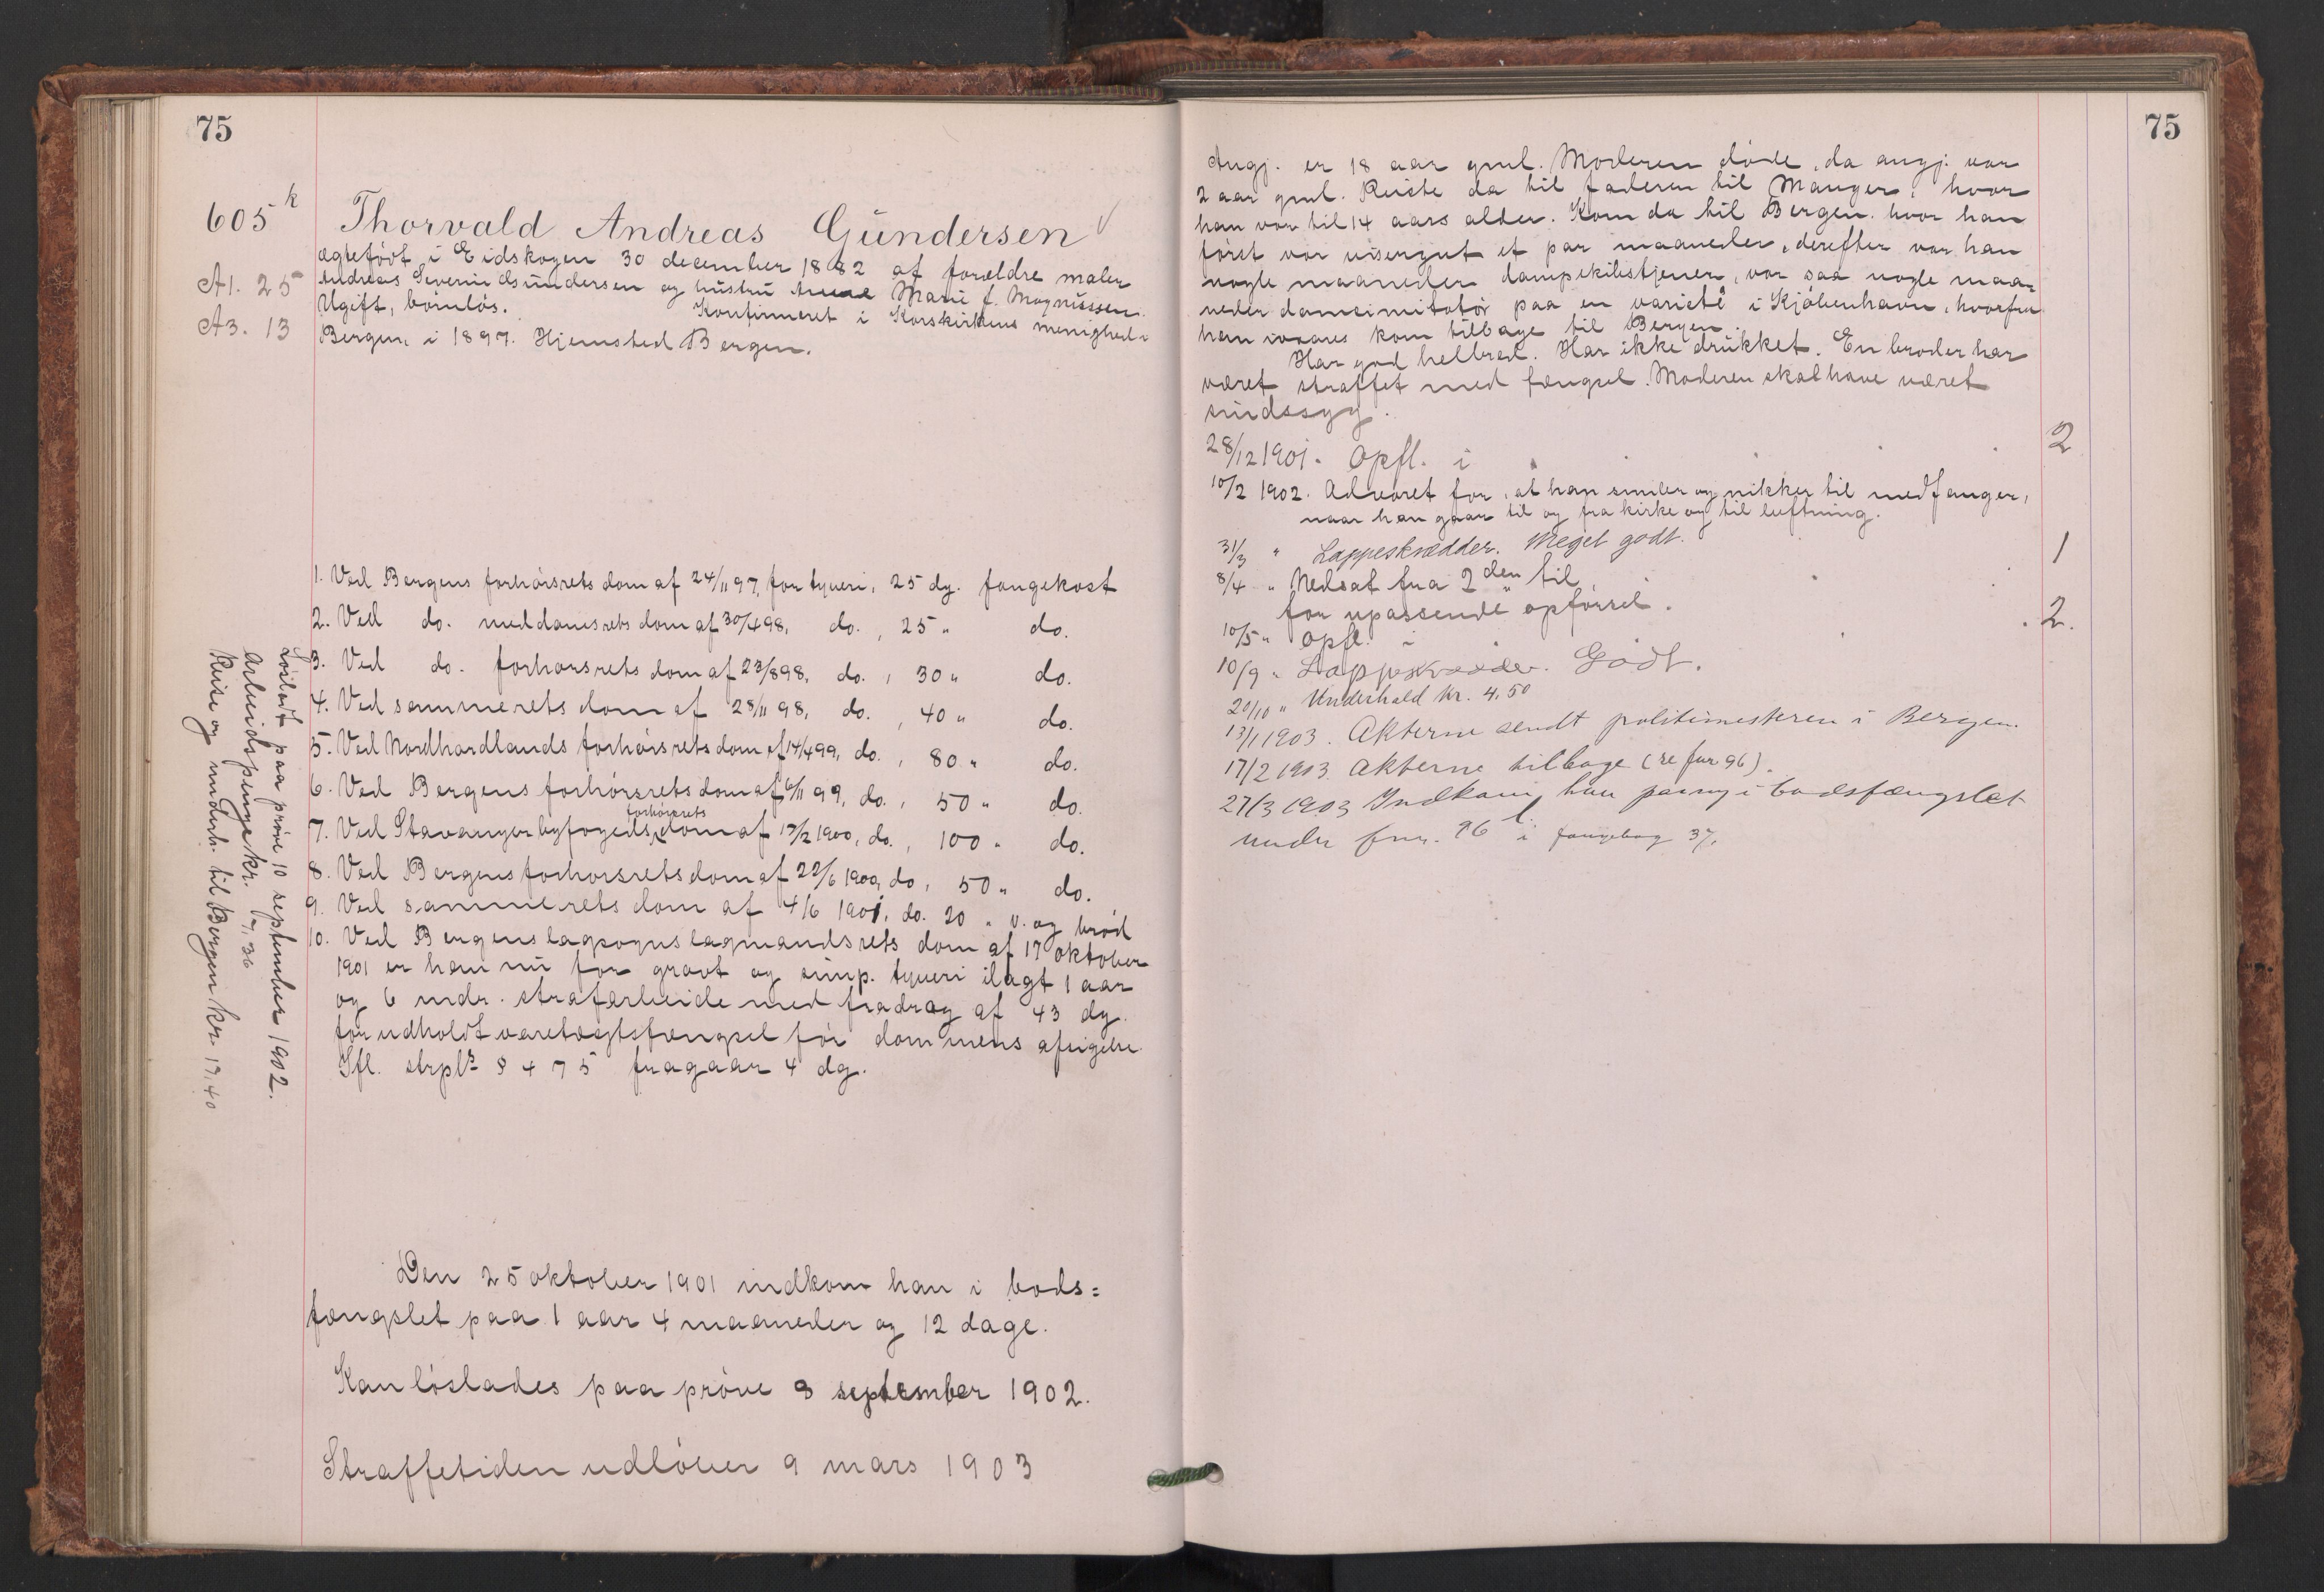 75
605 k
A1. 25
A3. 13
Thorvald Andreas Gundersen
ægtefødt i Eidskogen 30 december 1882 af forældre maler
Andreas Severin Gundersen og hustru Anne Marie f. Magnussen.
Ugift, børnløs. Konfirmeret i Korskirkens menighed i
Bergen, i 1897. Hjemsted Bergen.
1. Ved Bergens forhørsrets dom af 24/11 97, for tyveri, 25 dg. fangekost
2. Ved do. meddomsrets dom af 30/4 98, do., 25 " do.
3. Ved do. forhørsrets dom af 23/8 98, do., 30 " do.
4. Ved sammerets dom af 28/11 98, do., 40 " do.
5. Ved Nordhordlands forhørsrets dom af 14/4 99, do., 80 " do.
6. Ved Bergens forhørsrets dom af 6/11 99, do., 50 " do.
7. Ved Stavanger byfogeds forhørsrets dom af 17/2 1900, do., 100 " do.
8. Ved Bergens forhørsrets dom af 22/6 1900, do, 50 " do.
9. Ved sammerets dom af 4/6 1901, do. 20 " v. og brød
10. Ved Bergens lagsogns lagmandsrets dom af 17 oktober
1901 er han nu for grovt og simp. tyveri ilagt 1 aar
og 6 mdr. strafarbeide med fradrag af 43 dg.
for udholdt varetægtsfængsel før dommens afsigelse.
Ifl. strpl's § 475 fragaar 4 dg.
Løsladt paa prøve 10 september 1902.
Arbeidspenge kr. 7,36
Reise og underh. til Bergen kr. 17,40
Den 25 oktober 1901 indkom han i bods=
fængslet paa 1 aar 4 maaneder og 12 dage.
Kan løslades paa prøve 8 september 1902.
Straffetiden udløber 9 mars 1903
75
Angj. er 18 aar gml. Moderen døde, da angj. var
2 aar gml. Reiste da til faderen til Manger, hvor
han var til 14 aars alder. Kom da til Bergen. hvor han
først var visergut et par maaneder, derefter var han
nogle maaneder dampskibstjener, var saa nogle maa=
neder dameimitatør paa en varieté i Kjøbenhavn, hvorfra
han ivaares kom tilbage til Bergen.
Har god helbred. Har ikke drukket. En broder har
været straffet med fængsel. Moderen skal have været
sindssyg.
28/12 1901. Opfl. i 2
10/2 1902. Advaret for, at han smiler og nikker til medfanger,
naar han gaar til og fra kirke og til luftning.
31/3 " Lappeskrædder. Meget godt.
8/4 " Nedsat fra 2den til 1
for upassende opførsel.
10/5 " Opfl. i 2.
10/9 " Lappeskrædder. Godt.
20/10 " Underhold kr. 4,50
13/1 1903. Akterne sendt politimesteren i Bergen.
17/2 1903. Akterne tilbage (re fur 96).
27/3 1903 Indkom han paany i bodsfængslet
under fnr. 96 l. i fangebog 37.